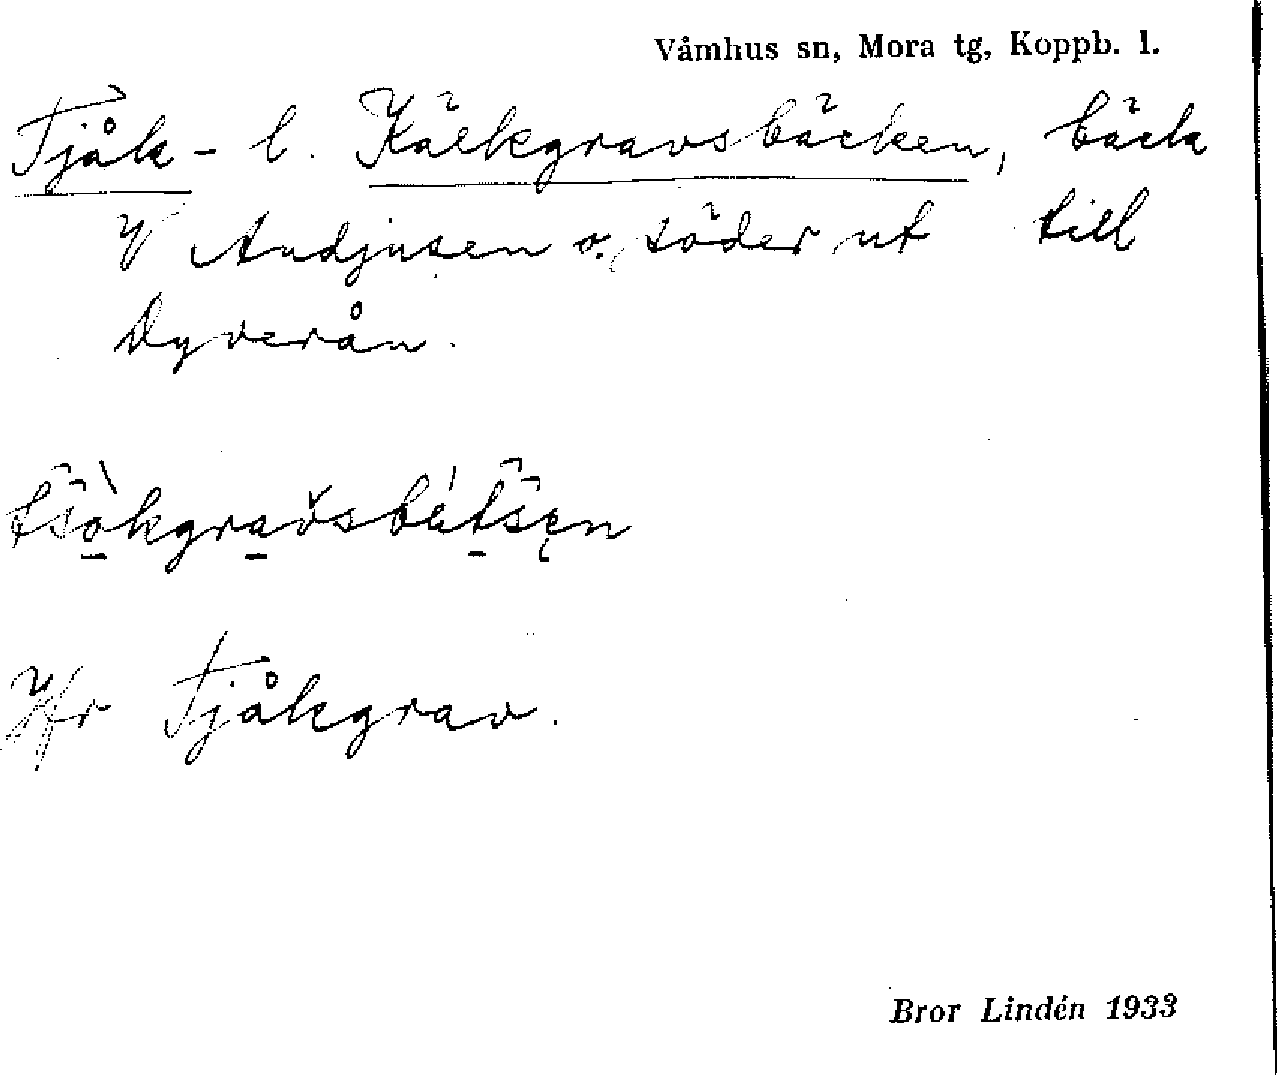 Våmhus sn, Mora tg, Koppb. l.
Tjåk- l. Kälkgravsbäcken, bäck
V Andjusen o. söder ut till
Dyverån.
Jfr Tjåkgrav.
Bror Lindén 1933